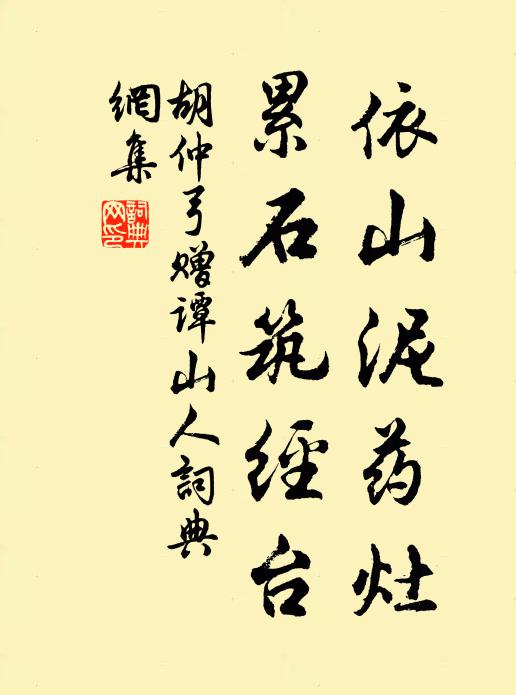 依山泥药灶
累石筑经台
胡仲弓赠谭山人詞典
網集
詞典
网印